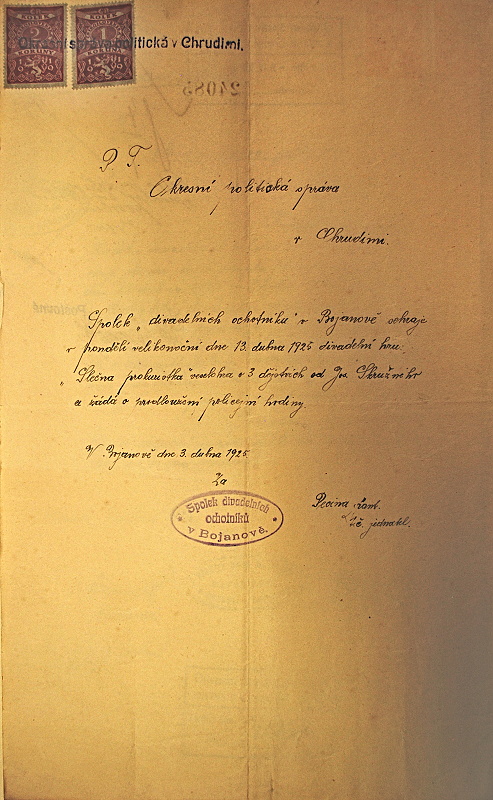 KOLEK
2
KORUNY
1919
KOLEK
1
KORUNA
1919
Okresní správa politická v Chrudimi.
24085
P. T.
Okresní politická správa
v Chrudimi.
Spolek „divadelních ochotníků" v Bojanově sehraje
v pondělí velikonoční dne 13. dubna 1925 divadelní hru:
„Slečna prokuristka" veselohra o 3 dějstvích od Jos. Skružného
a žádá o prodloužení policejní hodiny.
V Bojanově dne 3. dubna 1925.
Za
Spolek divadelních
ochotníků
v Bojanově.
Pecina
t. č. jednatel.